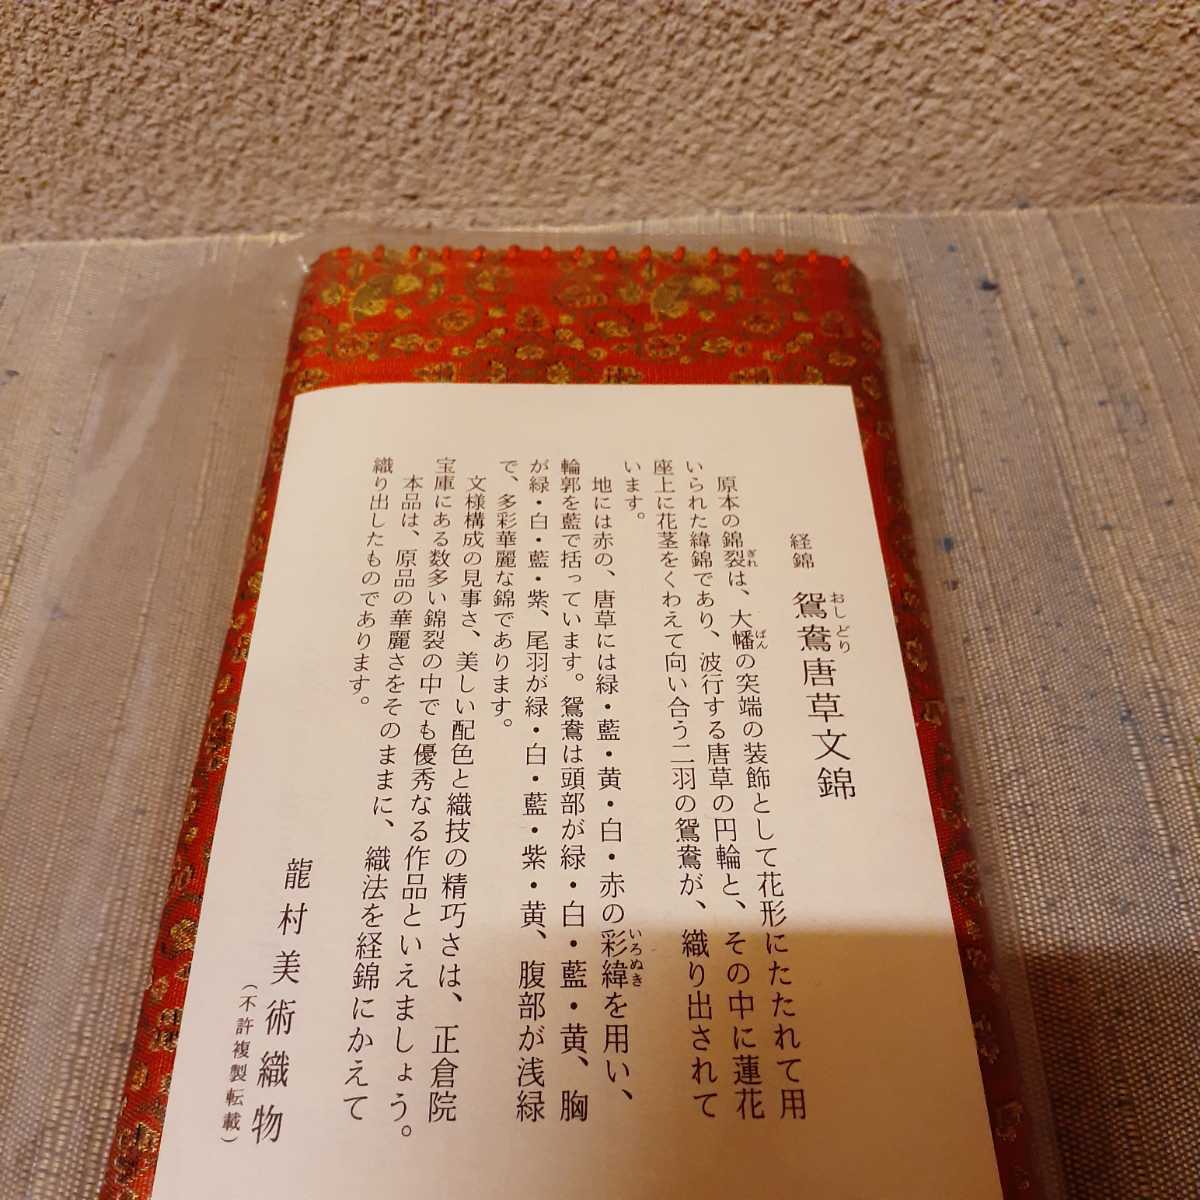 経錦 鴛鴦唐草文錦
おしどり
原本の錦裂は、大幡の突端の装飾として花形にたたれて用
ぎれ
ばん
いられた緯錦であり、波行する唐草の円輪と、その中に蓮花
座上に花茎をくわえて向い合う二羽の鴛鴦が、織り出されて
います。
地には赤の、唐草には緑・藍・黄・白・赤の彩緯を用い、
いろぬき
輪郭を藍で括っています。鴛鴦は頭部が緑・白・藍・黄、胸
が緑・白・藍・紫、尾羽が緑・白・藍・紫・黄、腹部が浅緑
で、多彩華麗な錦であります。
文様構成の見事さ、美しい配色と織技の精巧さは、正倉院
宝庫にある数多い錦裂の中でも優秀なる作品といえましょう。
本品は、原品の華麗さをそのままに、織法を経錦にかえて
織り出したものであります。
龍村美術織物
（不許複製転載）